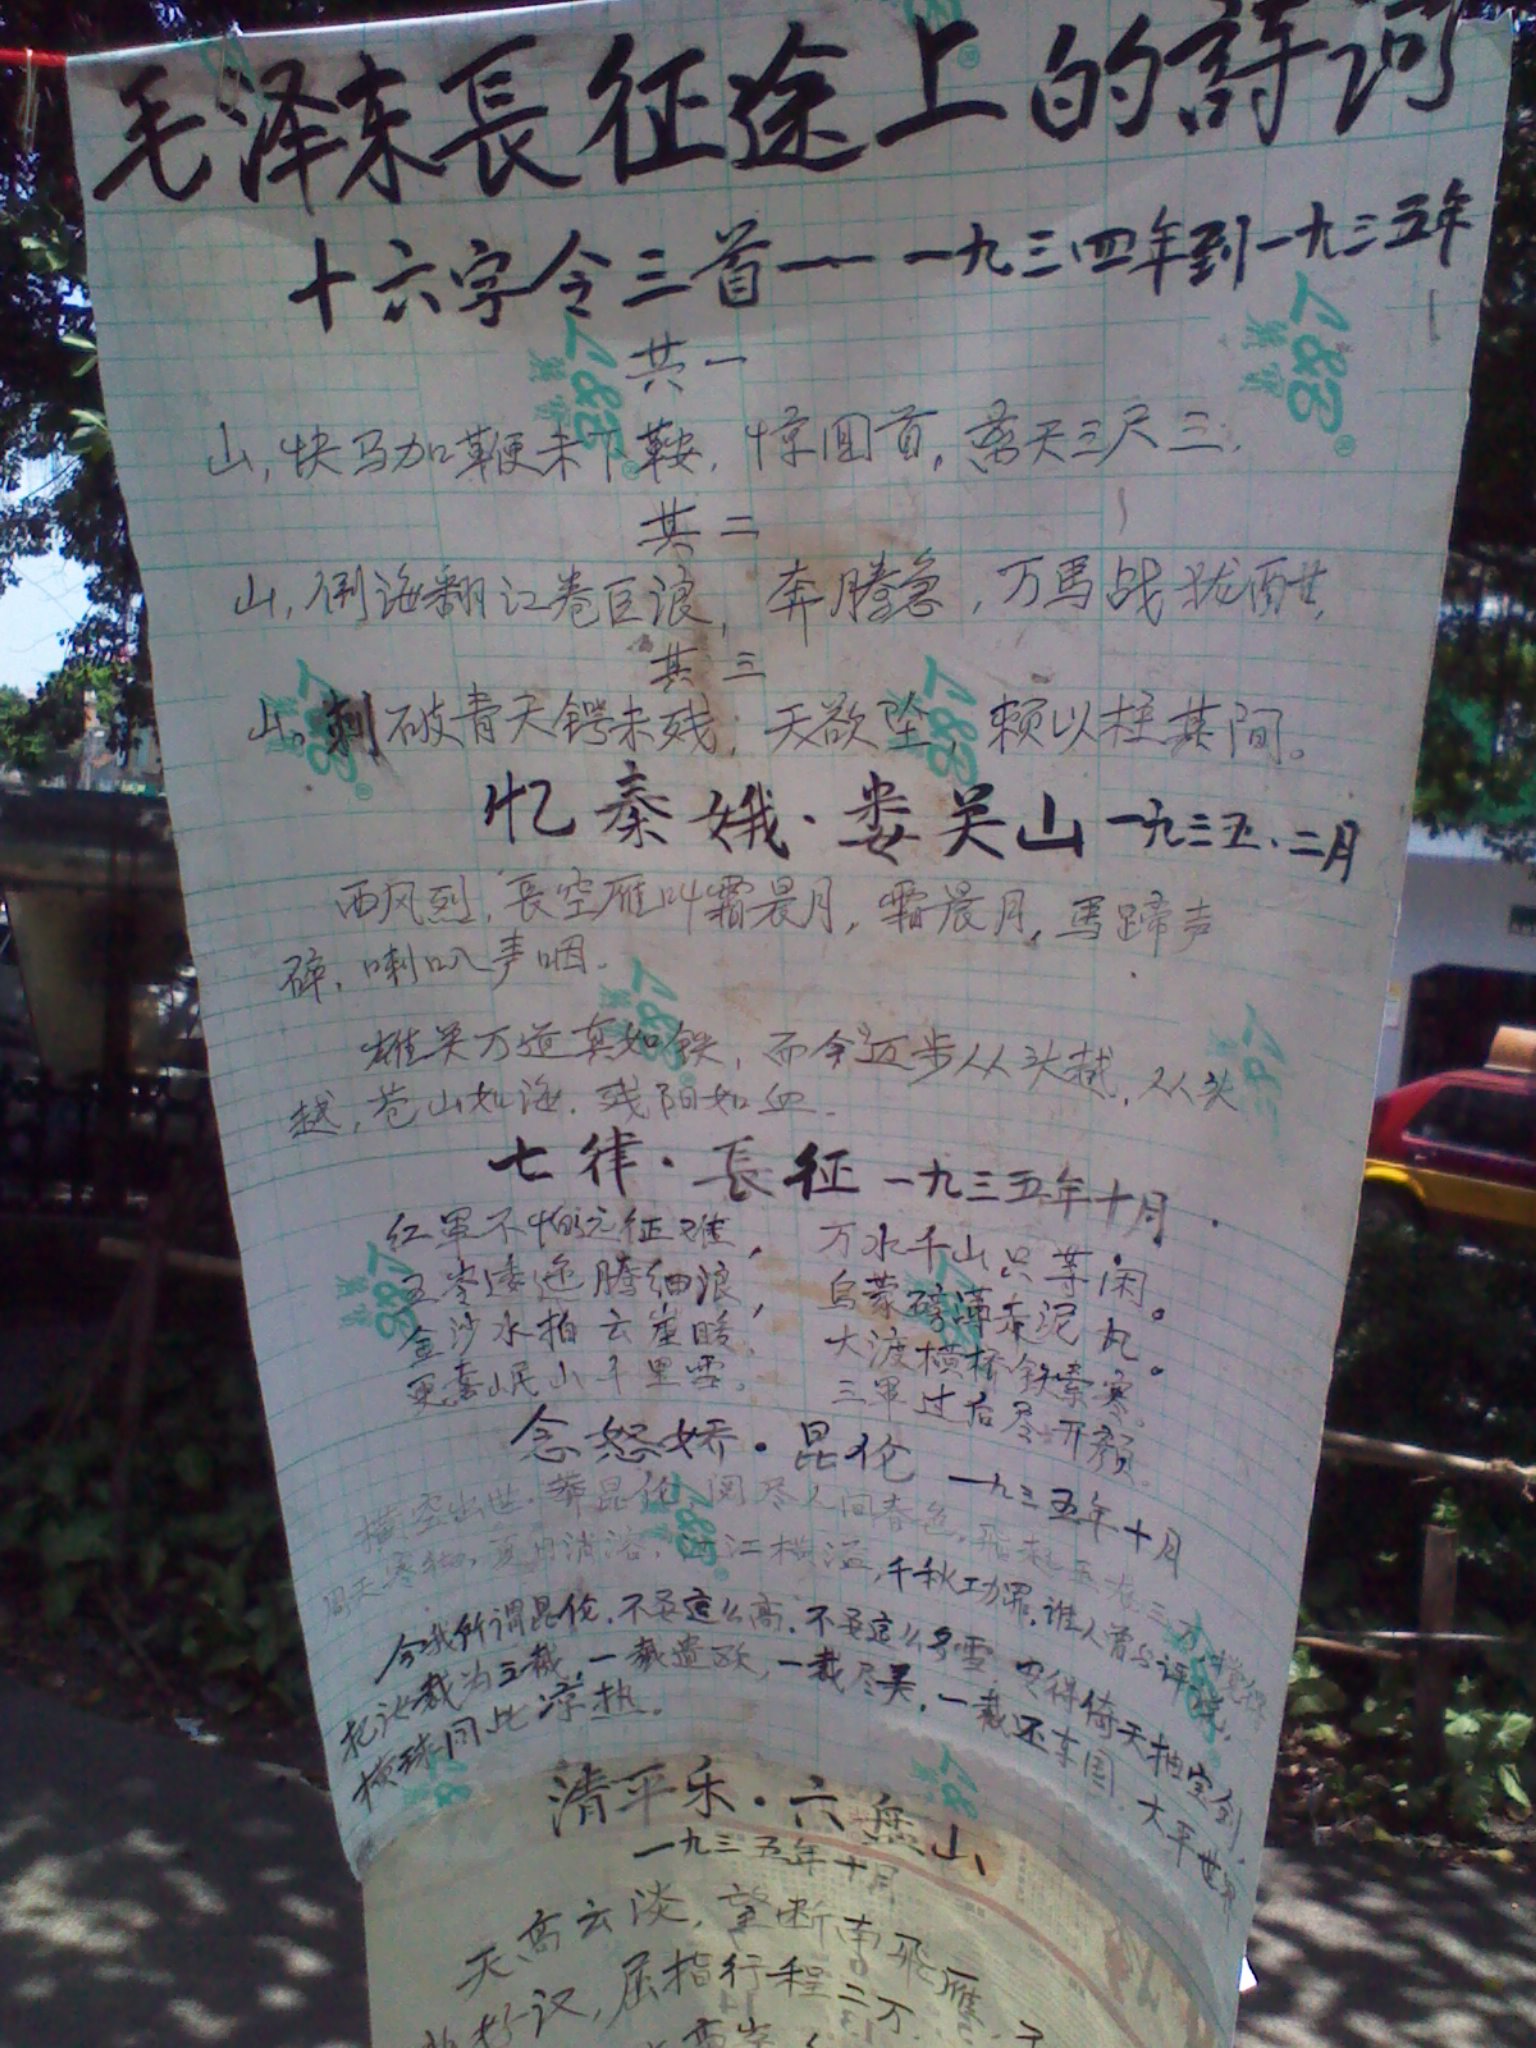 毛泽东長征途上的詩词
十六字令三首——一九三四年到一九三五年
其一
山,快马加鞭未下鞍,惊回首,离天三尺三,
其二
山,倒海翻江卷巨浪,奔腾急,万馬战犹酣,
其三
山。刺破青天锷未残,天欲坠,赖以柱其间。
忆秦娥·娄关山一九三五、二月
西风烈,長空雁叫霜晨月,霜晨月,馬蹄声
碎,喇叭声咽.
雄关万道真如铁,而今迈步从头越,从头
越,苍山如海.残阳如血.
七律·長征一九三五年十月.
红軍不怕远征难,万水千山只等闲。
五岭逶迤腾细浪,乌蒙磅薄走泥丸。
金沙水拍云崖暖,大渡横桥铁索寒。
更喜岷山千里雪。三軍过后尽开颜。
念怒娇·昆伦 一九三五年十月
横空出世.莽昆伦,阅尽人间春色,飛起玉龙三
周天寒彻,夏日消溶,江江横溢,千秋功罪.谁人曾与评说,
今我所谓昆伦.不要这么高.不要这么多雪 安得倚天抽宝剑,
把汝裁为三截,一截遗欧,一截尽美,一截还东国.太平世界
横球同此凉热.
清平乐·六盘山
一九三五年十月
天高云淡,望断南飛雁.
好汉,屈指行程二万.
高岸